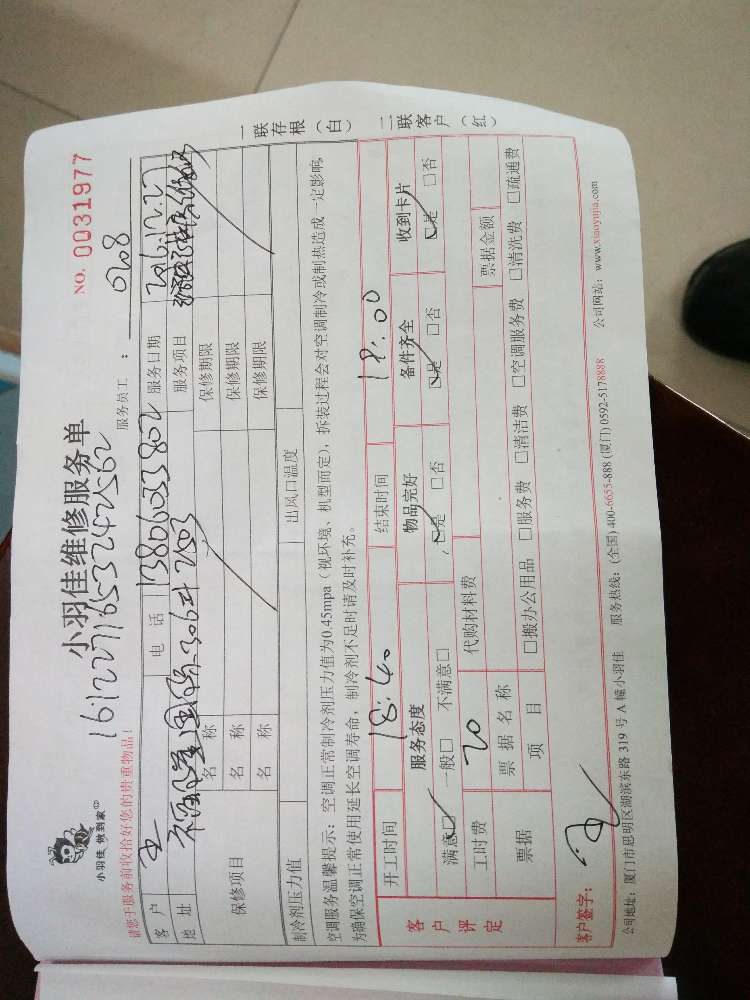 小羽佳 做到家
小羽佳维修服务单
NO. 0031977
161227165324562
请您于服务前收拾好您的贵重物品！
服务员工： 0208
客户 电话 13806033802 服务日期 2016.12.27
地址 服务项目
保修项目
名称 保修期限
名称 保修期限
名称 保修期限
制冷剂压力值 出风口温度
空调服务温馨提示：空调正常制冷剂压力值为0.45mpa（视环境、机型而定），拆装过程会对空调制冷或制热造成一定影响，
为确保空调正常使用延长空调寿命，制冷剂不足时请及时补充。
客户评定
开工时间 18:40 结束时间 18:00
服务态度 物品完好 备件齐全 收到卡片
满意□ 一般□ 不满意□ □是 □否 □是 □否 □是 □否
工时费 20 代购材料费
票据 票据名称 票据金额
项目 □搬办公用品 □服务费 □清洁费 □空调服务费 □清洗费 □疏通费
客户签字：
公司地址：厦门市思明区湖滨东路 319 号 A 幢小羽佳 服务热线：(全国) 400-6655-888 (厦门) 0592-5178888 公司网站：www.xiaoyujia.com
一联存根（白） 二联客户（红）